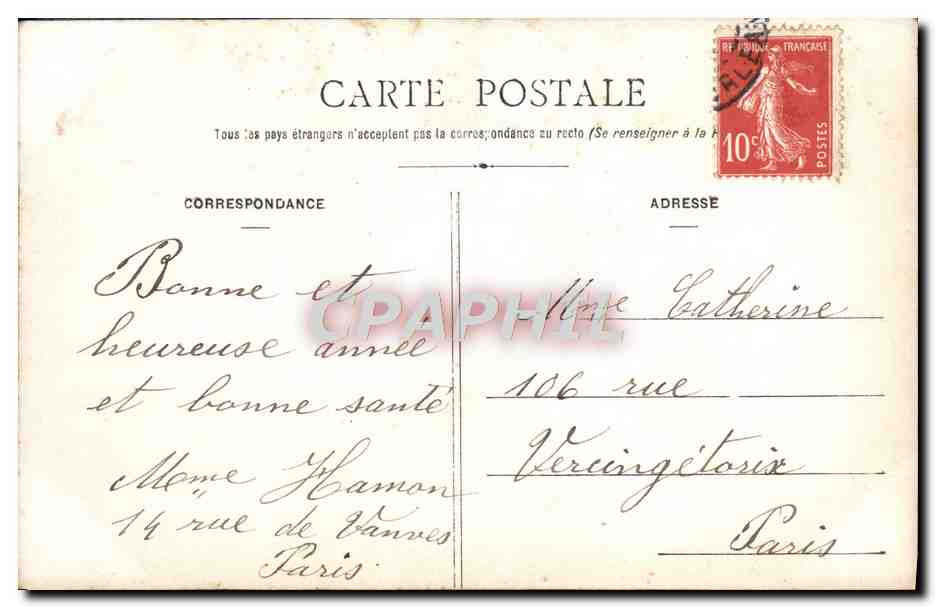 CARTE POSTALE
Tous les pays étrangers n'acceptent pas la correspondance au recto (Se renseigner à la
RÉPUBLIQUE FRANÇAISE
10c
POSTES
CORRESPONDANCE
Bonne et
heureuse année
et bonne santé
Mme Hamon
14 rue de Vanves
Paris
ADRESSE
Mme Catherine
106 rue
Vercingétorix
Paris
CPAPHIL